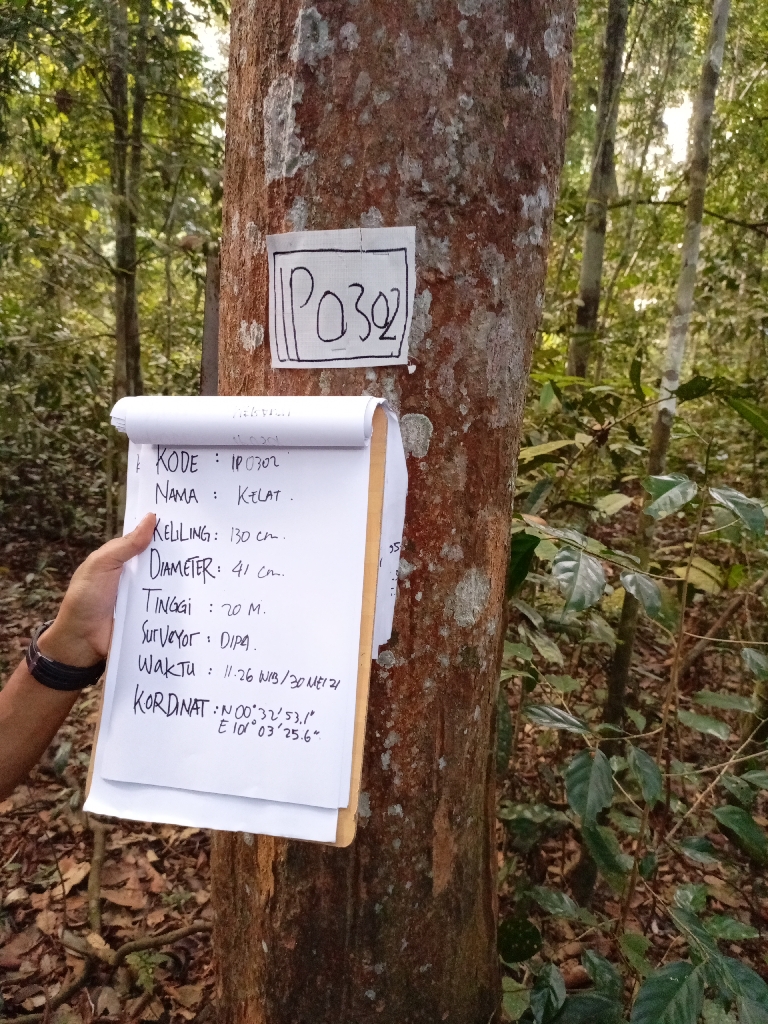 IP0302
KODE : IP0302
NAMA : KELAT.
KELILING : 130 cm.
DIAMETER : 41 cm.
TINGGI : 20 M.
SURVEYOR : DIPA.
WAKTU : 11.26 WIB/30 MEI 21
KORDINAT : N 00° 32' 53.1"
E 101° 03' 25.6"